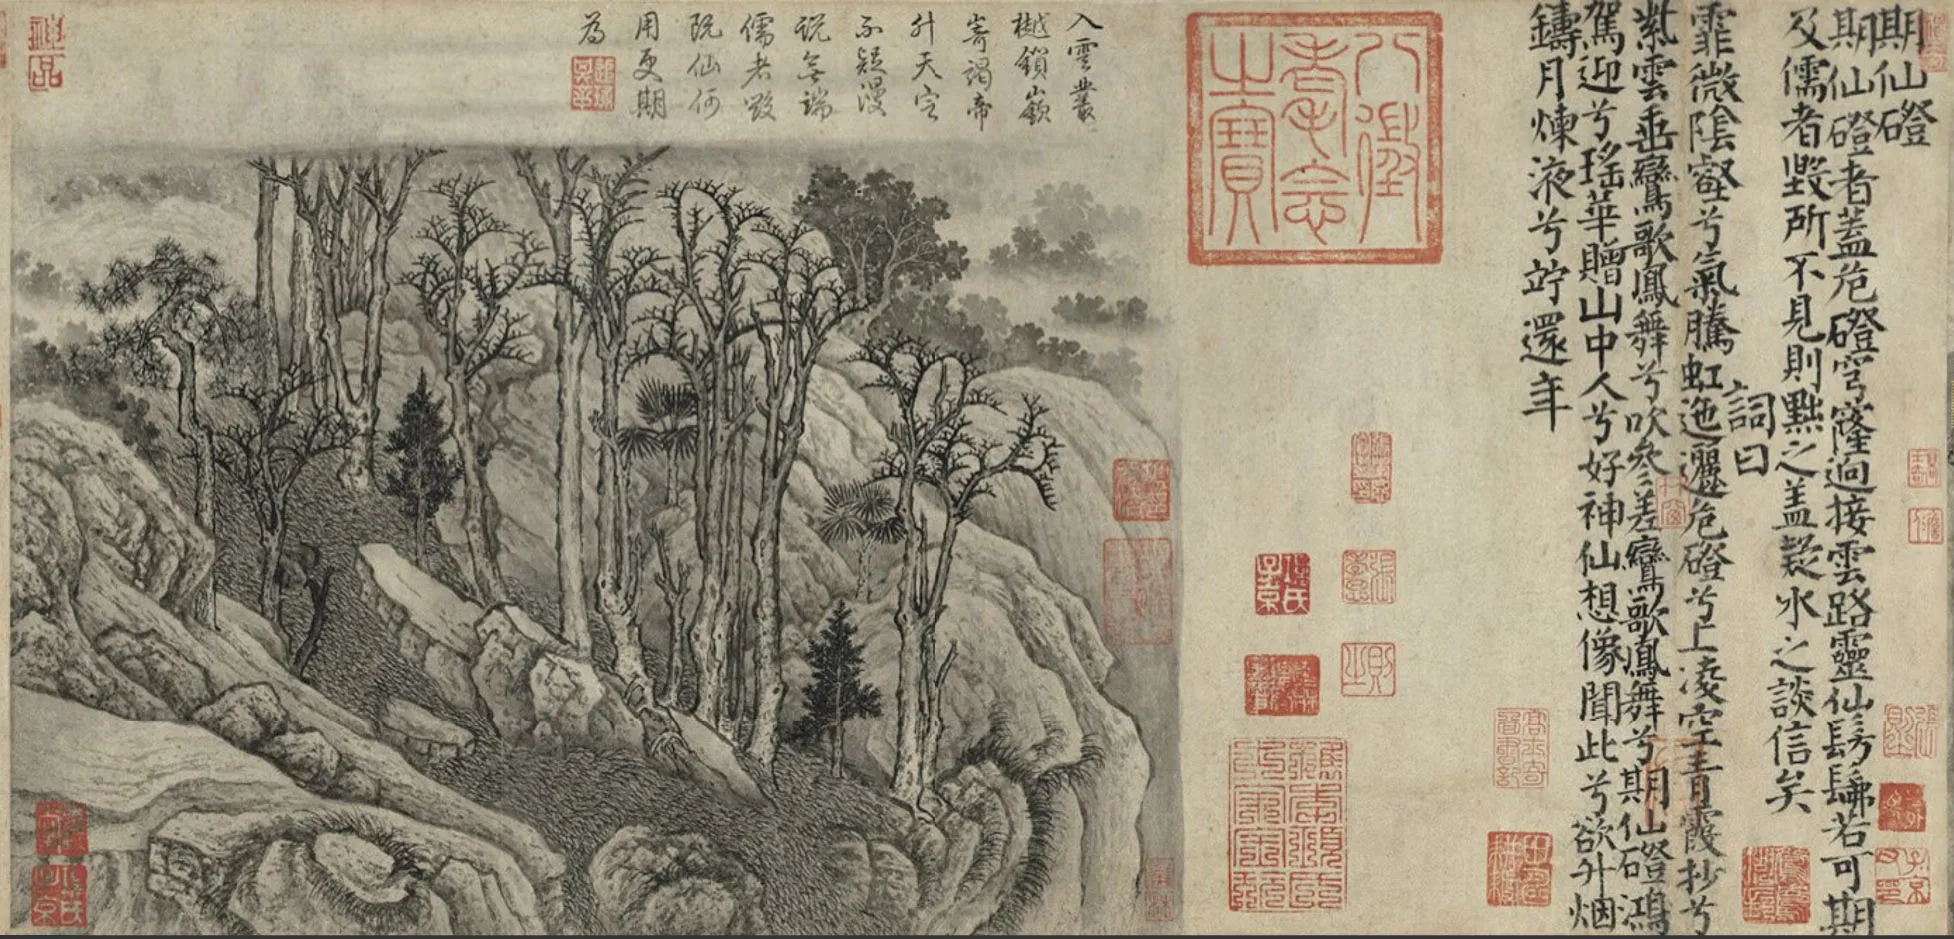 期仙磴
期仙磴者蓋危磴穹窿迥接雲路靈仙髣髴若可期
及儒者毀所不見則黜之蓋疑冰之談信矣
詞曰
霏微陰壑兮氣騰虹迤邐危磴兮上凌空青霞抄兮
紫雲垂鸞歌鳳舞兮吹參差鸞歌鳳舞兮期仙磴鴻
駕迎兮瑤華贈山中人兮好神仙想像聞此兮欲升烟
鑄月煉液兮竚還年
八徵
耄念
之寶
入雲叢
樾鎖嶔
崎謁帝
升天定
不疑漫
說無端
儒者毀
既仙何
用更期
為
神品
項氏
子京